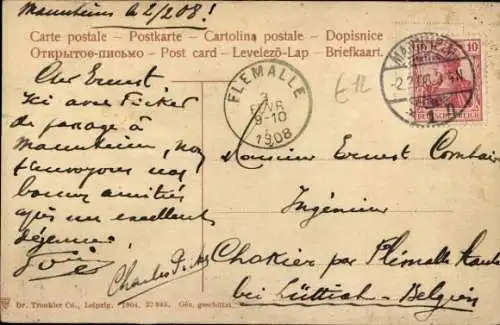 Mannheim le 2/2 08!
Carte postale – Postkarte – Cartolina postale – Dopisnice
Открытое-письмо – Post card – Levelező-Lap. – Briefkaart.
Cher Ernest
Ici avec Ficker
de passage à
Mannheim, nous
t'envoyons nos
bonnes amitiés
après un excellent
déjeuner
Charles Ficker
FLEMALLE
3
FEVR
9-10
1908
£12
MANNHEIM
10
DEUTSCHES REICH
Monsieur Ernest Comhaire
Ingénieur
Chokier par Flémalle Haute
bei Lüttich – Belgien
Dr. Trenkler Co., Leipzig. 1904. Ges. geschützt.